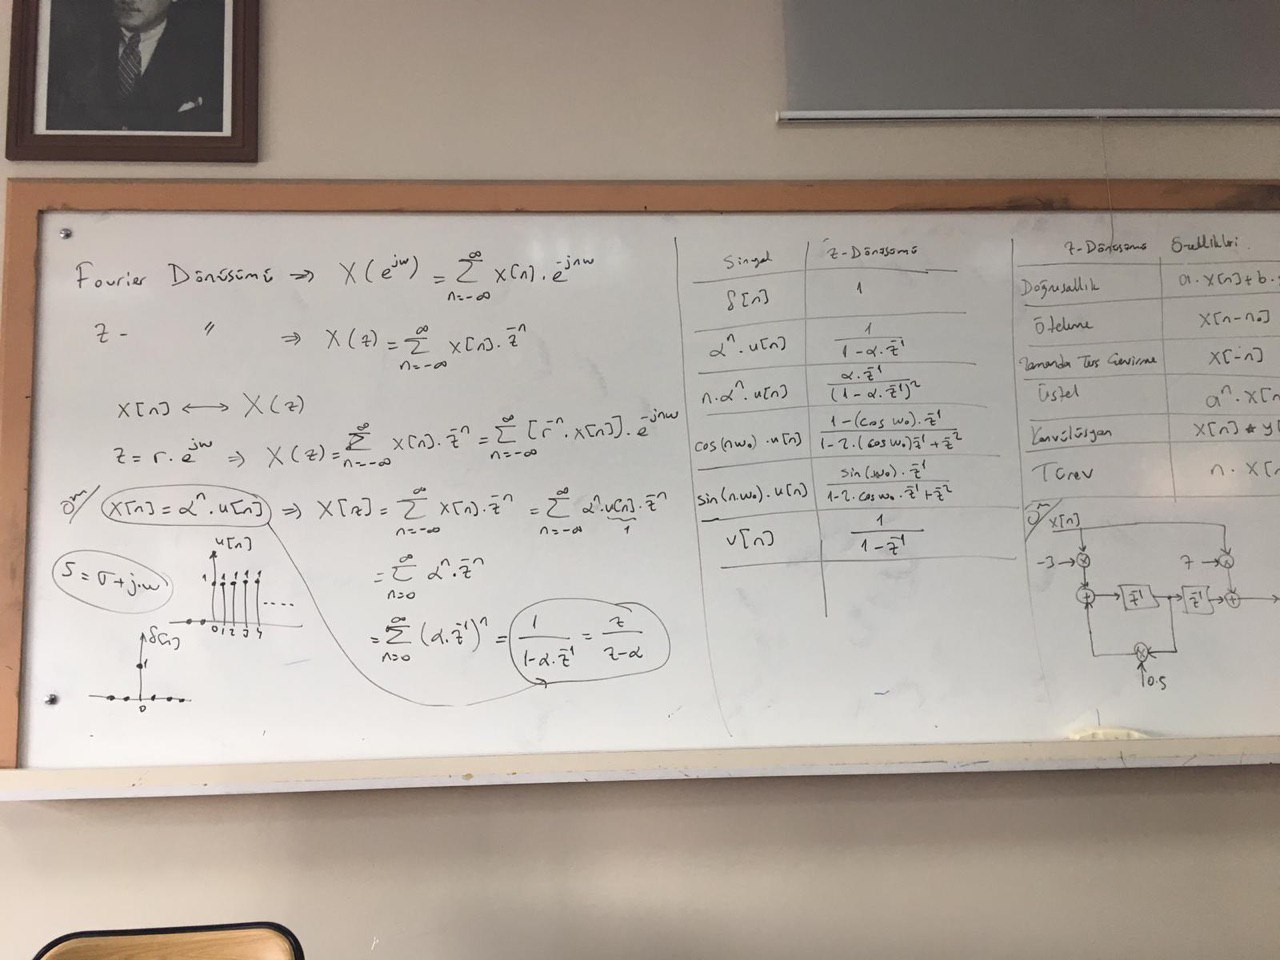 Fourier Dönüşümü ⇒ X(e^{jw}) = ∑_{n=-∞}^{∞} x[n].e^{-jnw}
Z- " ⇒ X(z) = ∑_{n=-∞}^{∞} x[n].z^{-n}
x[n] ⟷ X(z)
z = r.e^{jw} ⇒ X(z) = ∑_{n=-∞}^{∞} x[n].z^{-n} = ∑_{n=-∞}^{∞} [r^{-n}.x[n]].e^{-jnw}
Ö^{rn}/ x[n] = α^n.u[n] ⇒ X[z] = ∑_{n=-∞}^{∞} x[n].z^{-n} = ∑_{n=-∞}^{∞} α^n.u[n].z^{-n}
1
= ∑_{n=0}^{∞} α^n.z^{-n}
= ∑_{n=0}^{∞} (α.z^{-1})^n = 1/(1-α.z^{-1}) = z/(z-α)
S = σ+j.w
u[n]
1 1 1 1 1 ....
0 1 2 3 4
δ[n]
1
0
Sinyal | Z-Dönüşümü
δ[n] | 1
α^n.u[n] | 1/(1-α.z^{-1})
n.α^n.u[n] | α.z^{-1}/(1-α.z^{-1})^2
cos(nw₀).u[n] | 1-(cos w₀).z^{-1}/1-2.(cos w₀)z^{-1}+z^{-2}
sin(n.w₀).u[n] | sin(w₀).z^{-1}/1-2.cosw₀.z^{-1}+z^{-2}
u[n] | 1/(1-z^{-1})
Z-Dönüşümü Özellikleri
Doğrusallık | a.x[n]+b.
Öteleme | x[n-n₀]
Zamanda Ters Çevirme | x[-n]
Üstel | a^n.x[n
Konvülüsyon | x[n] * y[
Türev | n.x[n
Ö^{rn}/ x[n]
-3 → × 7 → ×
+ → z^{-1} → z^{-1} → +
×
0.5